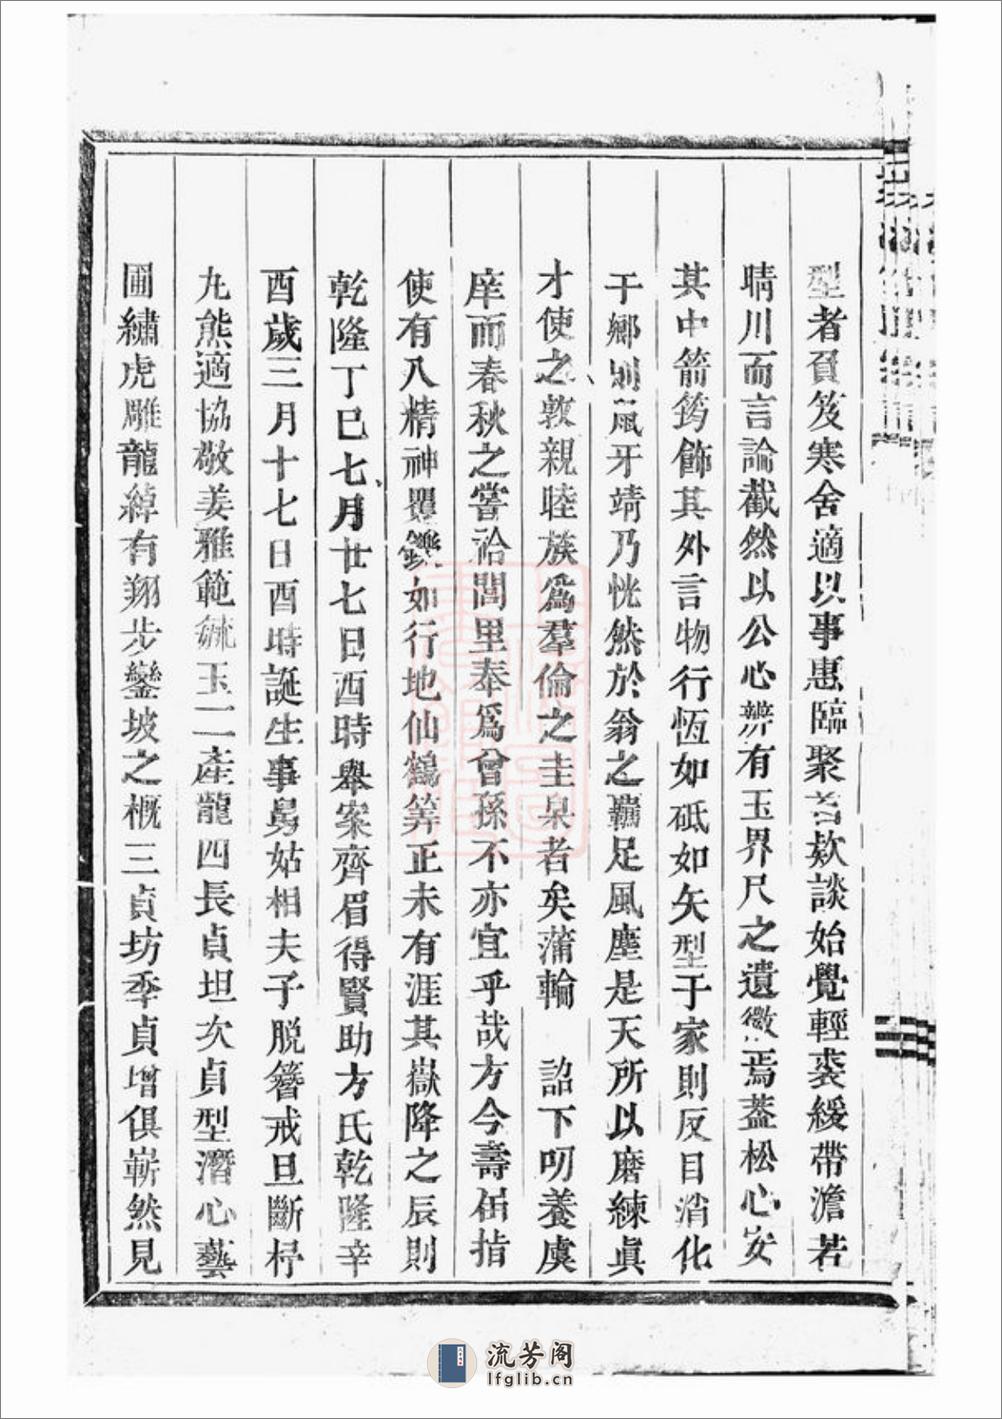 型者負笈寒舍適以事惠臨聚首欵談始覺輕裘緩帶澹若
晴川而言論截然以公心辨有玉界尺之遺徽焉葢松心安
其中箭筠飾其外言物行恆如砥如矢型于家則反目消化
于鄉則鼠牙靖乃恍然於翁之羈足風塵是天所以磨練眞
才使之敦親睦族爲羣倫之圭臬者矣蒲輪 詔下叨養虞
庠而春秋之嘗祫閭里奉爲曾孫不亦宜乎哉方今壽屆指
使有八精神矍鑠如行地仙鶴筭正未有涯其嶽降之辰則
乾隆丁巳七月廿七日酉時舉案齊眉得賢助方氏乾隆辛
酉歲三月十七日酉時誕生事舅姑相夫子脱簪戒旦斷杼
丸熊適協敬姜雅範毓玉二產龍四長貞坦次貞型潛心藝
圃繡虎雕龍綽有翔步鑾坡之概三貞坊季貞增俱嶄然見
流芳阁
lfglib.cn